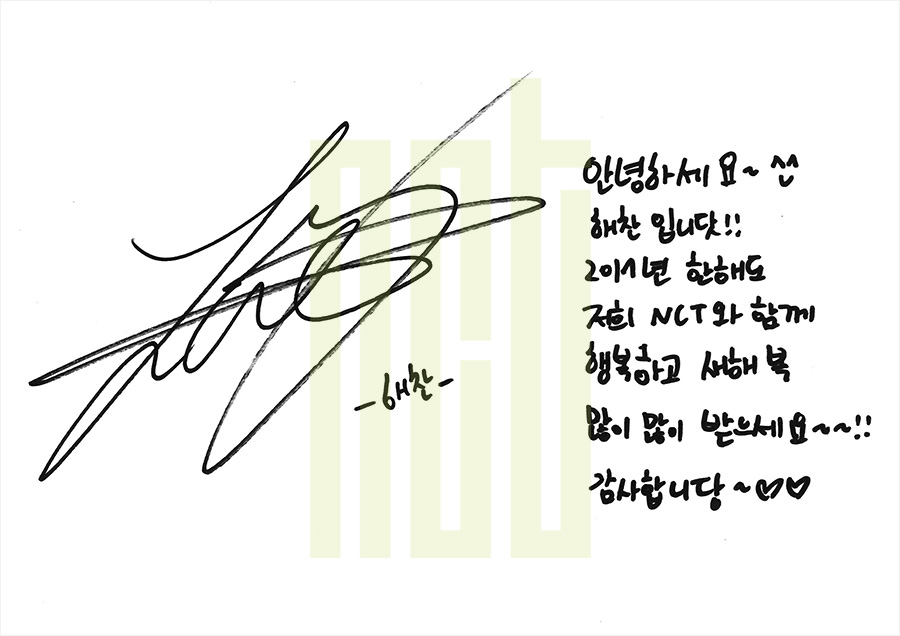 안녕하세요~ ^^
해찬 입니닷!!
2017년 한해도
저희 NCT와 함께
행복하고 새해 복
많이 많이 받으세요~~!!
감사합니당~♡♡
-해찬-
nct